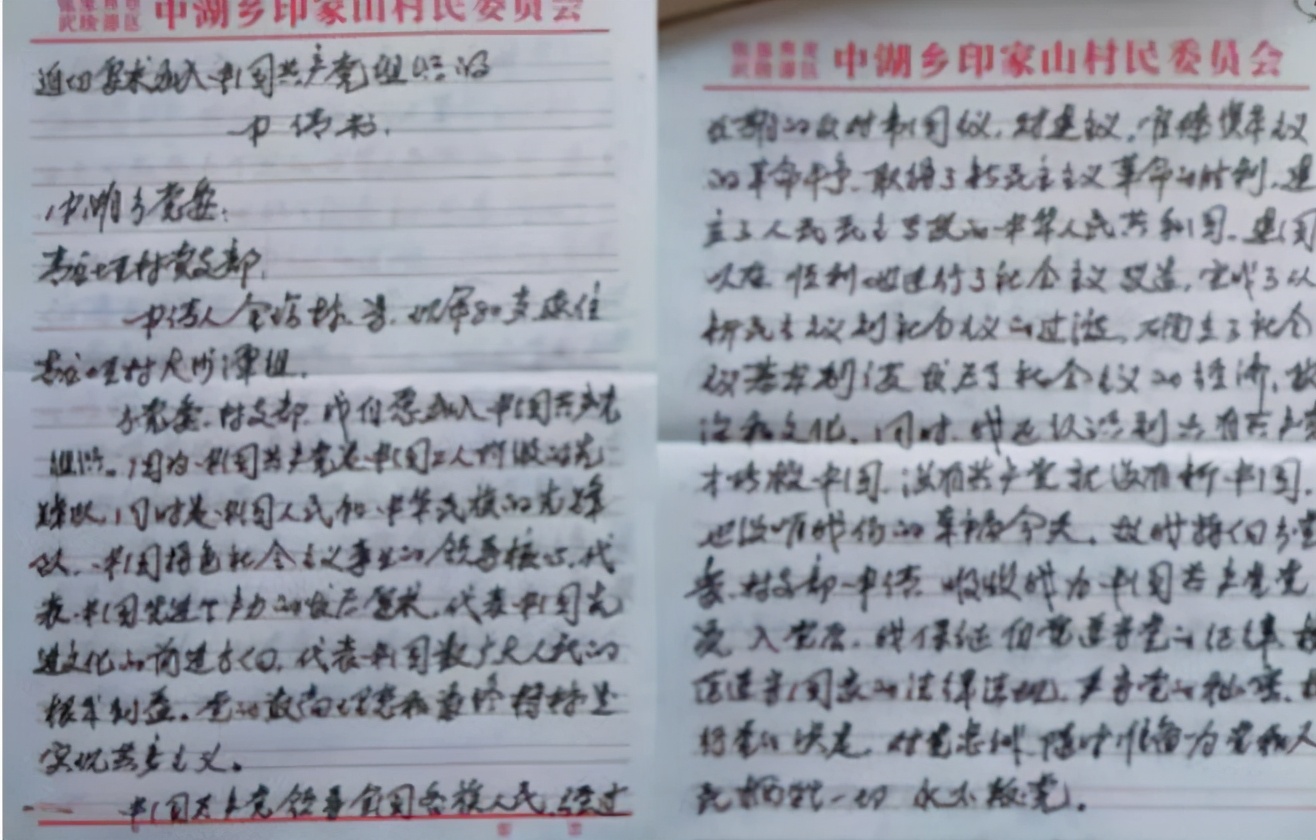 张家界市
武陵源区 中湖乡印家山村民委员会
迫切要求加入中国共产党组织的
申请书.
中湖乡党委:
村党支部.
申请人 现年80岁家住
村大 潭组.
乡党委.村支部.我自愿加入中国共产党
组织。因为中国共产党是中国工人阶级的先
锋队,同时是中国人民和中华民族的先锋
队.中国特色社会主义事业的领导核心.代
表中国先进生产力的发展要求.代表中国先
进文化的前进方向.代表中国最广大人民的
根本利益。党的最高理想和最终目标是
实现共产主义。
中国共产党领导全国各族人民.经过
张家界市
武陵源区 中湖乡印家山村民委员会
反对帝国主义.封建主义.官僚资本主义
的革命斗争.取得了新民主主义革命的胜利.建
立了人民民主专政的中华人民共和国.建国
以后 顺利地进行了社会主义改造.完成了从
新民主主义到社会主义的过渡.确立了社会
义基本制度 发展了社会主义的经济.政
治和文化.同时.我还认识到只有共产党
才能救中国.没有共产党就没有新中国.
也没有我们的幸福今天.故此特向乡党
委.村支部申请.吸收我为中国共产党党
员.入党后.我保证 遵守党的纪律.
遵守国家的法律法规.严守党的秘密.
行党的决定.对党忠诚.随时准备为党和人
民牺牲一切 永不叛党.